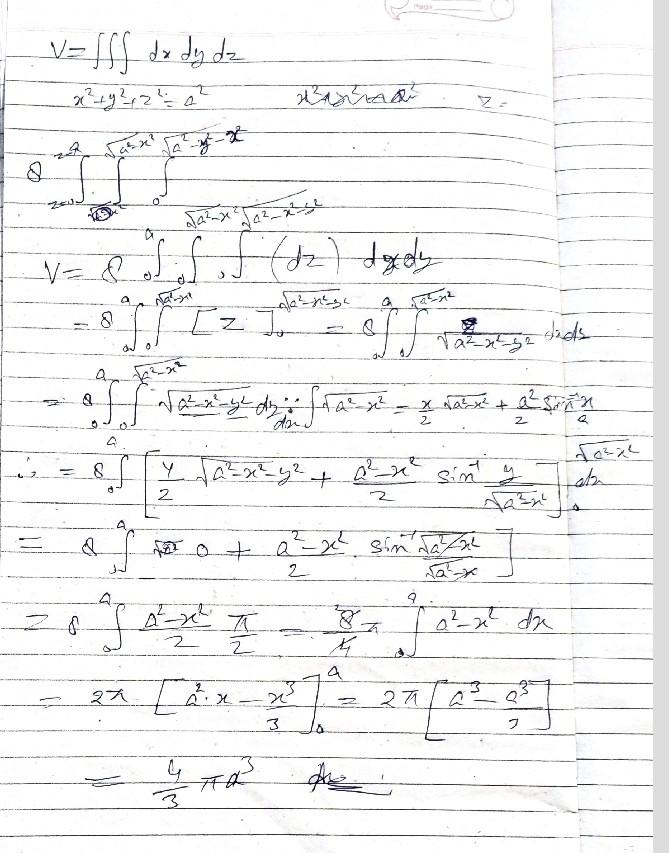 V = ∫∫∫ dx dy dz
x² + y² + z² = a²    z =
8 ∫ z=0 ∫ √a²-x² ∫ 0 √a²-y²-x²
V = 8 ∫ 0 a ∫ 0 √a²-x² ∫ 0 √a²-x²-y² (dz) dxdy
= 8 ∫ 0 a ∫ 0 √a²-x² [z] 0 √a²-x²-y² = 8 ∫ 0 a ∫ 0 √a²-x² √a²-x²-y² dxdy
= 8 ∫ 0 a ∫ 0 √a²-x² √a²-x²-y² dy dx ∵ ∫ √a²-x² = x/2 √a²-x² + a²/2 sin⁻¹ x/a
∴ = 8 ∫ 0 a [ y/2 √a²-x²-y² + a²-x²/2 sin⁻¹ y/√a²-x² ] 0 √a²-x² dx
= 8 ∫ 0 a 0 + a²-x²/2 . sin⁻¹ √a²-x²/√a²-x ]
= 8 ∫ 0 a a²-x²/2 π/2 = 8/4 π ∫ 0 a a²-x² dx
= 2π [ a².x - x³/3 ] 0 a = 2π [ a³ - a³/3 ]
= 4/3 πa³